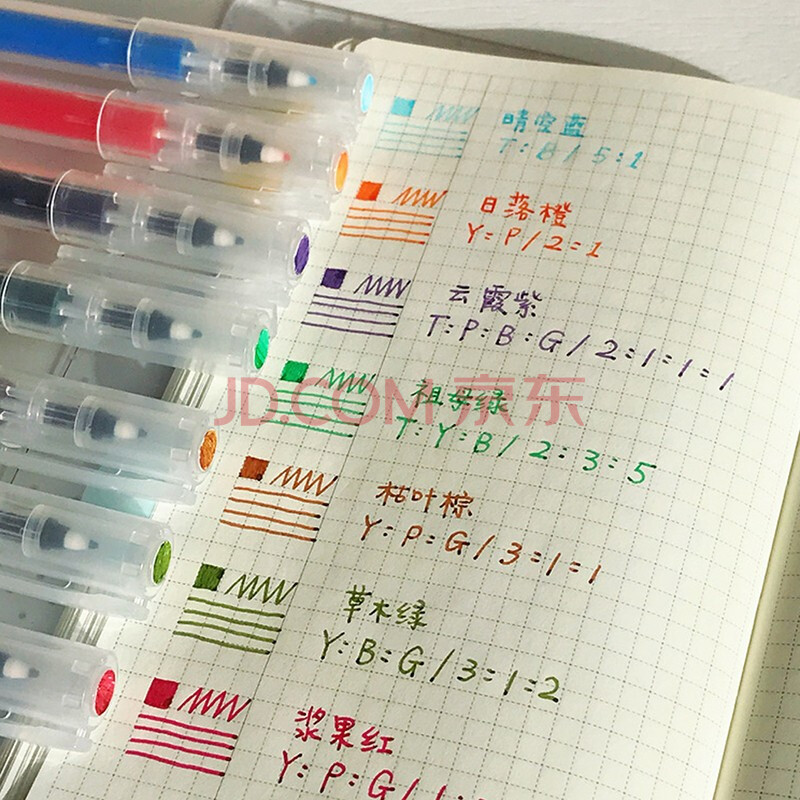 晴空蓝
T:B/5:1
日落橙
Y:P/2:1
云霞紫
T:P:B:G/2:1:1:1
JD.COM 京东
祖母绿
T:Y:B/2:3:5
枯叶棕
Y:P:G/3:1:1
草木绿
Y:B:G/3:1:2
浆果红
Y:P:G/1: